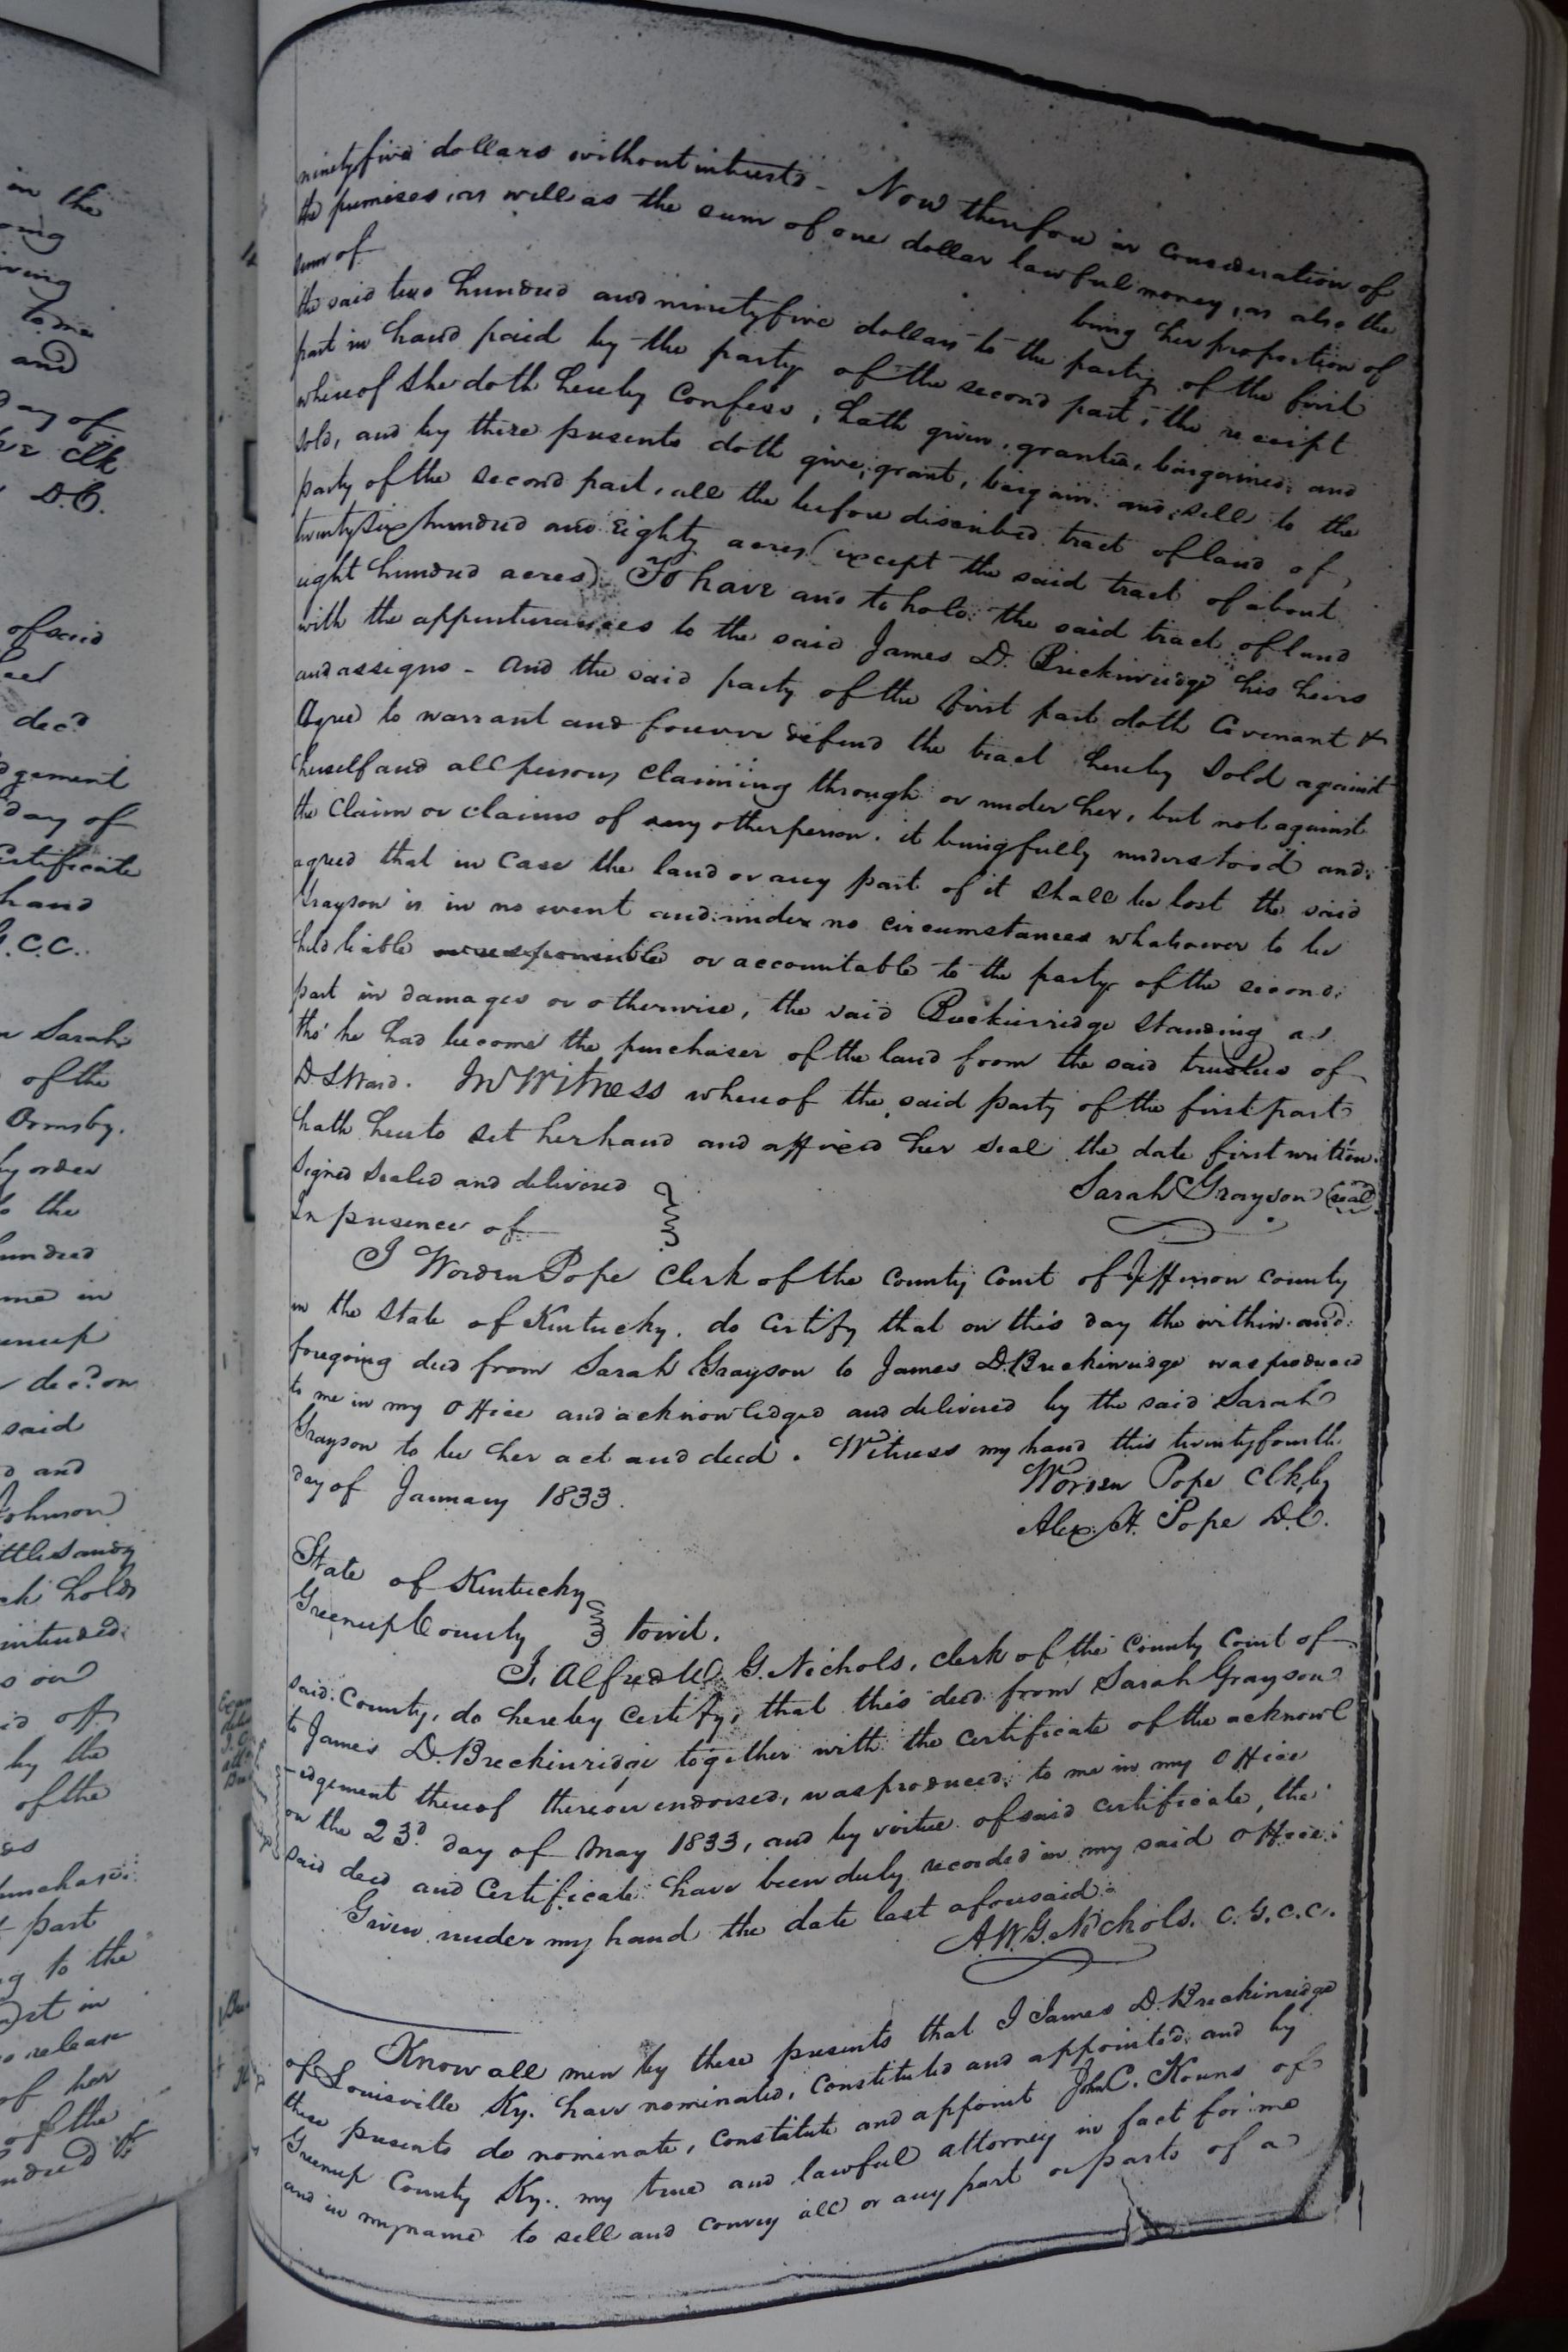 in the
and
day of
Clk
D.C.
of said
dec.d
day of
hand
G.C.C.
Sarah
of the
Ormsby.
by order
to the
hundred
me in
dec.d on
said
and
Johnson
Little Sandy
holds
intended
on
by the
of the
part
to the
in
release
of her
of the
ninety five dollars without interests - Now therefore in consideration of
the premises, as well as the sum of one dollar lawful money, as also the
sum of being her proportion of
the said two hundred and ninety five dollars to the party of the first
part in hand paid by the party of the second part, the receipt
whereof she doth hereby Confess, hath given, granted, bargained and
sold, and by these presents doth give, grant, bargain and sell to the
party of the second part, all the before discribed tract of land of,
twenty six hundred and Eighty acres (except the said tract of about
eight hundred acres) To have and to hold the said tract of land
with the appurtenances to the said James D. Breckinridge his heirs
and assigns - And the said party of the first part doth Covenant &
Agree to warrant and forever defend the tract hereby Sold against
herself and all persons claiming through or under her, but not against
the Claim or claims of any other person. it being fully understood and
agreed that in Case the land or any part of it shall be lost the said
Grayson is in no event and under no circumstances whatsoever to be
held liable or responsible or accountable to the party of the second
part in damages or otherwise, the said Breckinridge Standing as
tho' he had become the purchaser of the land from the said trustees of
D. L. Ward. In Witness whereof the said party of the first part
hath hereto set her hand and affixed her seal the date first written.
Signed sealed and delivered Sarah Grayson (seal)
In presence of
I Worden Pope Clerk of the County Court of Jefferson County
in the State of Kentucky. do Certify that on this day the within and
foregoing deed from Sarah Grayson to James D. Breckinridge was produced
to me in my Office and acknowledged and delivered by the said Sarah
Grayson to be her act and deed. Witness my hand this twenty fourth
day of January 1833. Worden Pope Clk by
Alex. H. Pope D.C.
State of Kentucky
Greenup County towit.
I, Alfred W. G. Nichols, clerk of the County Court of
said County, do hereby Certify, that this deed from Sarah Grayson
to James D. Breckinridge together with the certificate of the acknowl
-edgement thereof thereon endorsed, was produced to me in my Office
on the 23d. day of May 1833, and by virtue of said certificate, the
said deed and Certificate have been duly recorded in my said Office.
Given under my hand the date last aforesaid.
A. W. G. Nichols. C.G.C.C.
Know all men by these presents that I James D. Breckinridge
of Louisville Ky. have nominated, Constituted and appointed and by
these presents do nominate, Constitute and appoint John C. Kouns of
Greenup County Ky. my true and lawful attorney in fact for me
and in my name to sell and convey all or any part or parts of a